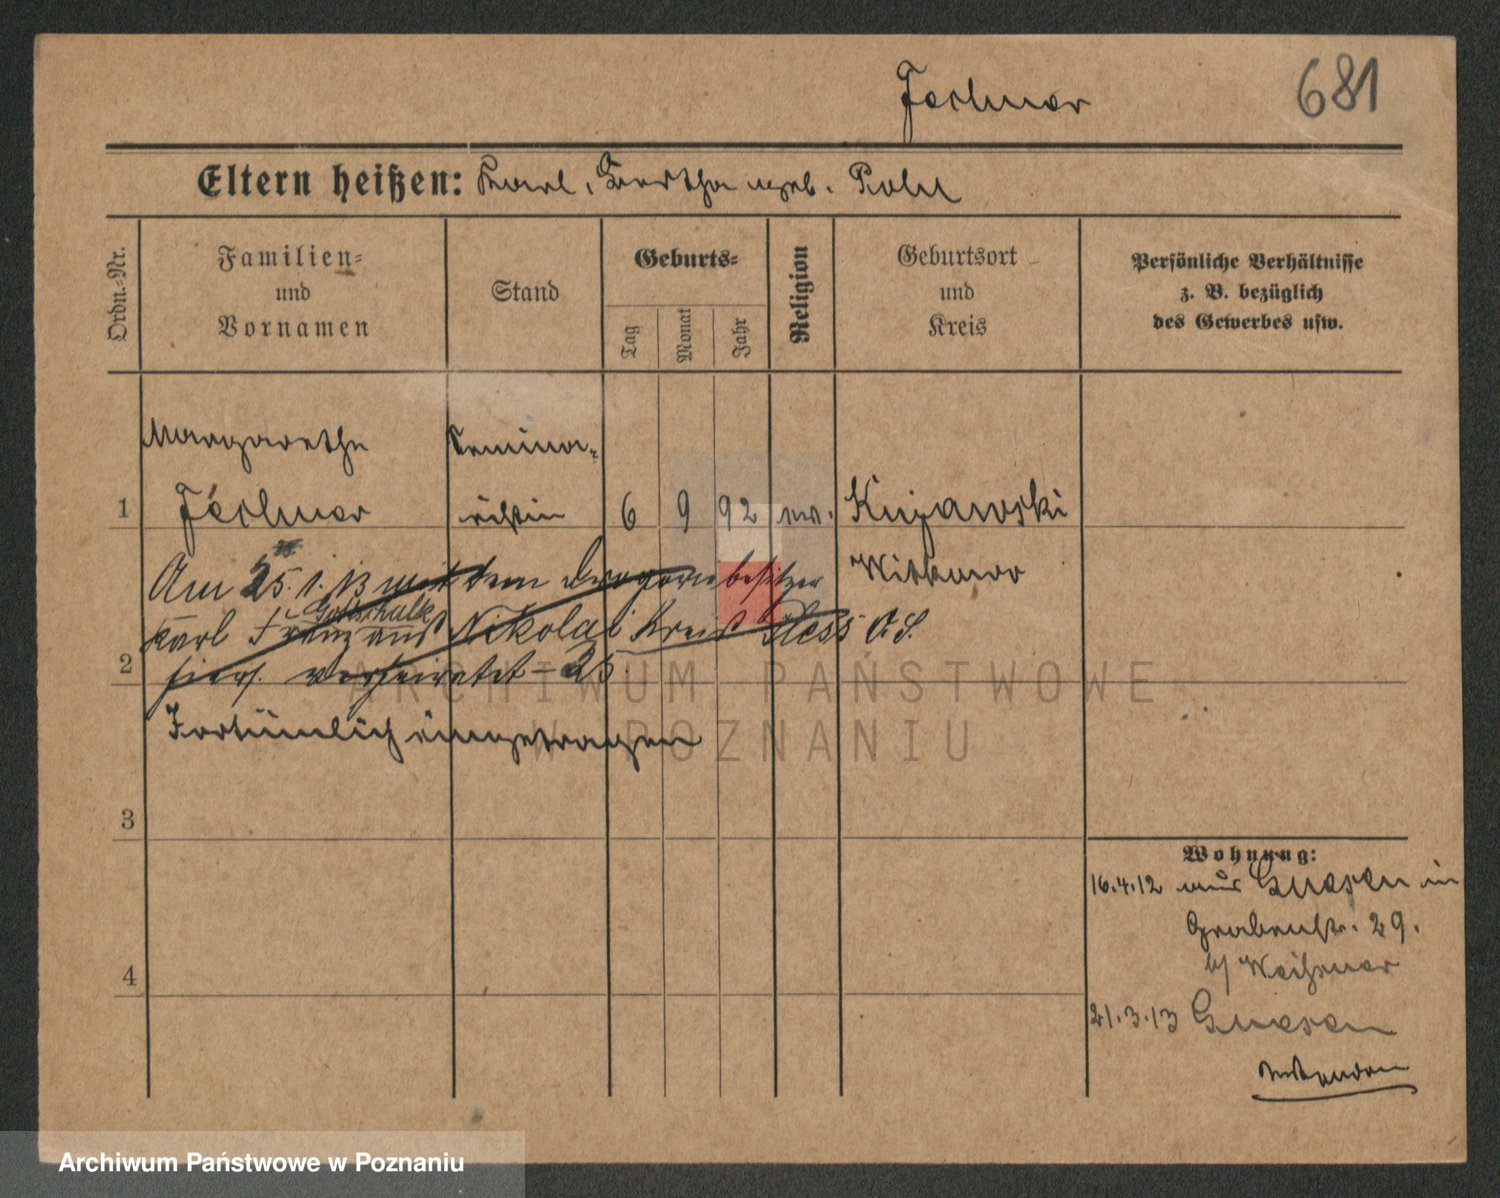 681
Eltern heißen: Karl, Bertha geb.
Ordn.-Nr.
Familien-
und
Vornamen
Stand
Geburts-
Tag
Monat
Jahr
Religion
Geburtsort
und
Kreis
Persönliche Verhältnisse
z. B. bezüglich
des Gewerbes usw.
Margarethe
Semina-
1
ristin 6 9 92 ev. Kujawski
Am 25.1.13 mit dem Drogeriebesitzer
Gottschalk
Karl Franz aus Nikolai Kreis Pless O.S.
2
hiers. verheiratet - 25
Irrtümlich eingetragen
3
4
Wohnung:
16.4.12 aus Gnesen in
Grabenstr. 29.
b/
21.3.13 Gnesen
ARCHIWUM PAŃSTWOWE
W POZNANIU
Archiwum Państwowe w Poznaniu